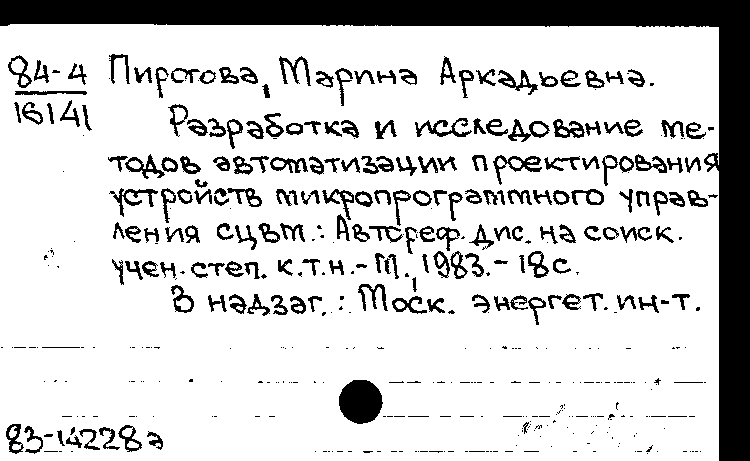 84-4 Пирогова, Марина Аркадьевна.
16141
Разработка и исследование ме-
тодов автоматизации проектирования
устройств микропрограммного управ-
ления СЦВМ.: Автореф. дис. на соиск.
учен. степ. к.т.н.-М., 1983.-18с.
В надзаг.: Моск. энергет. ин-т.
83-14228а